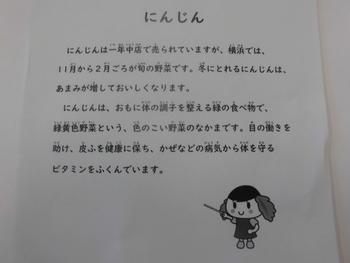 にんじん
にんじんは一年中店で売られていますが、横浜では、
11月から2月ごろが旬の野菜です。冬にとれるにんじんは、
あまみが増しておいしくなります。
にんじんは、おもに体の調子を整える緑の食べ物で、
緑黄色野菜という、色のこい野菜のなかまです。目の働きを
助け、皮ふを健康に保ち、かぜなどの病気から体を守る
ビタミンをふくんでいます。